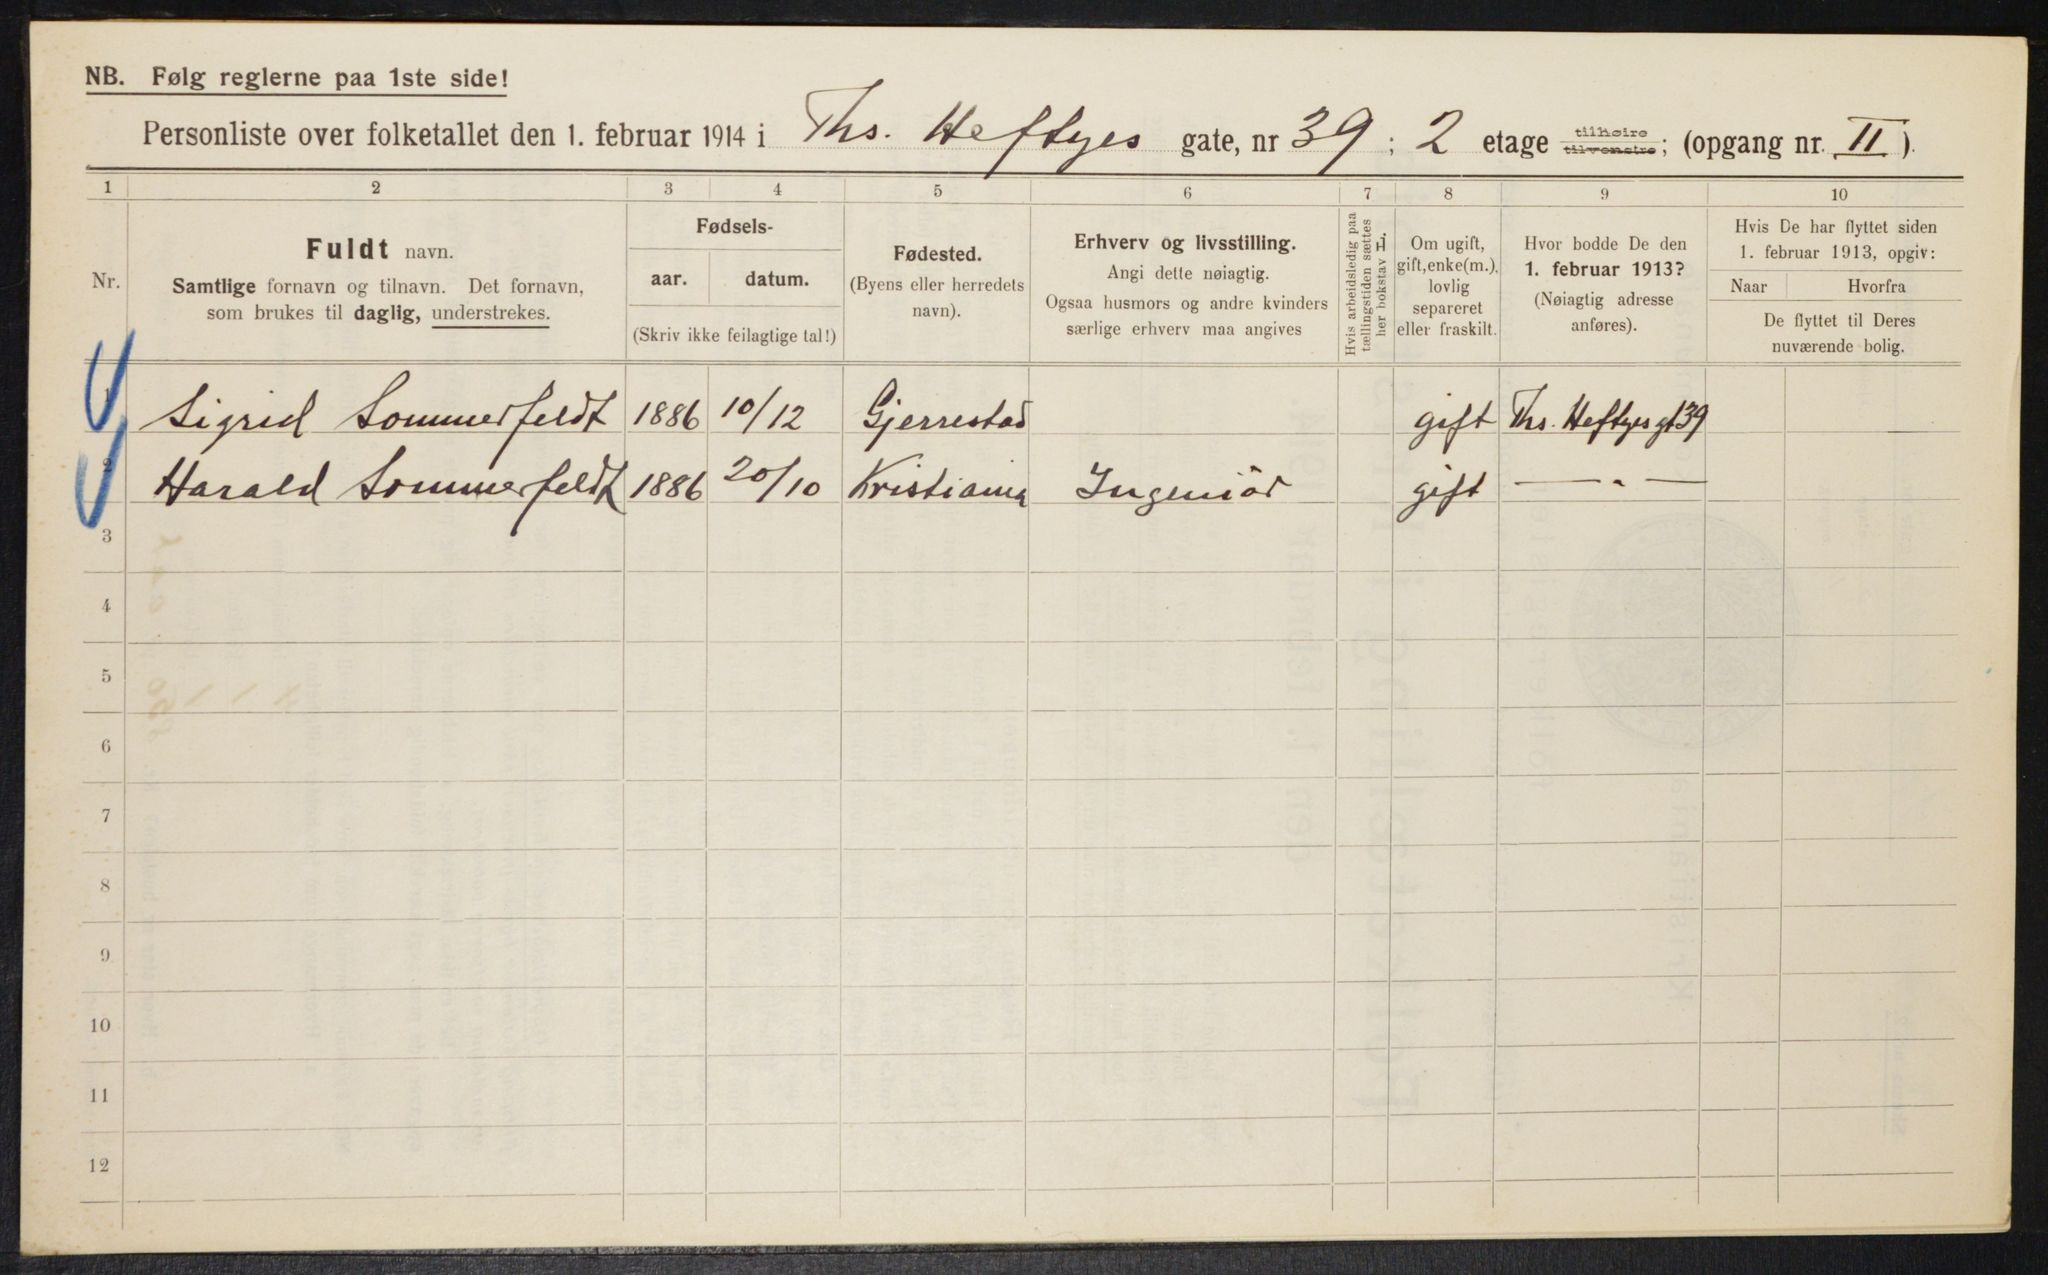 NB. Følg reglerne paa 1ste side!
Personliste over folketallet den 1. februar 1914 i Ths. Heftyes gate, nr 39; 2 etage tilhøire tilvenstre; (opgang nr. II).
1 2 3 4 5 6 7 8 9 10
Nr.
Fuldt navn.
Samtlige fornavn og tilnavn. Det fornavn,
som brukes til daglig, understrekes.
Fødsels-
aar. datum.
(Skriv ikke feilagtige tal!)
Fødested.
(Byens eller herredets
navn).
Erhverv og livsstilling.
Angi dette nøiagtig.
Ogsaa husmors og andre kvinders
særlige erhverv maa angives
Hvis arbeidsledig paa
tællingstiden sættes
her bokstav L.
Om ugift,
gift, enke(m.),
lovlig
separeret
eller fraskilt.
Hvor bodde De den
1. februar 1913?
(Nøiagtig adresse
anføres).
Hvis De har flyttet siden
1. februar 1913, opgiv:
Naar Hvorfra
De flyttet til Deres
nuværende bolig.
1 Sigrid Sommerfeldt 1886 10/12 Gjerrestad gift Ths. Heftyes gt 39
2 Harald Sommerfeldt 1886 20/10 Kristiania Ingeniör gift — " —
3
4
5
6
7
8
9
10
11
12